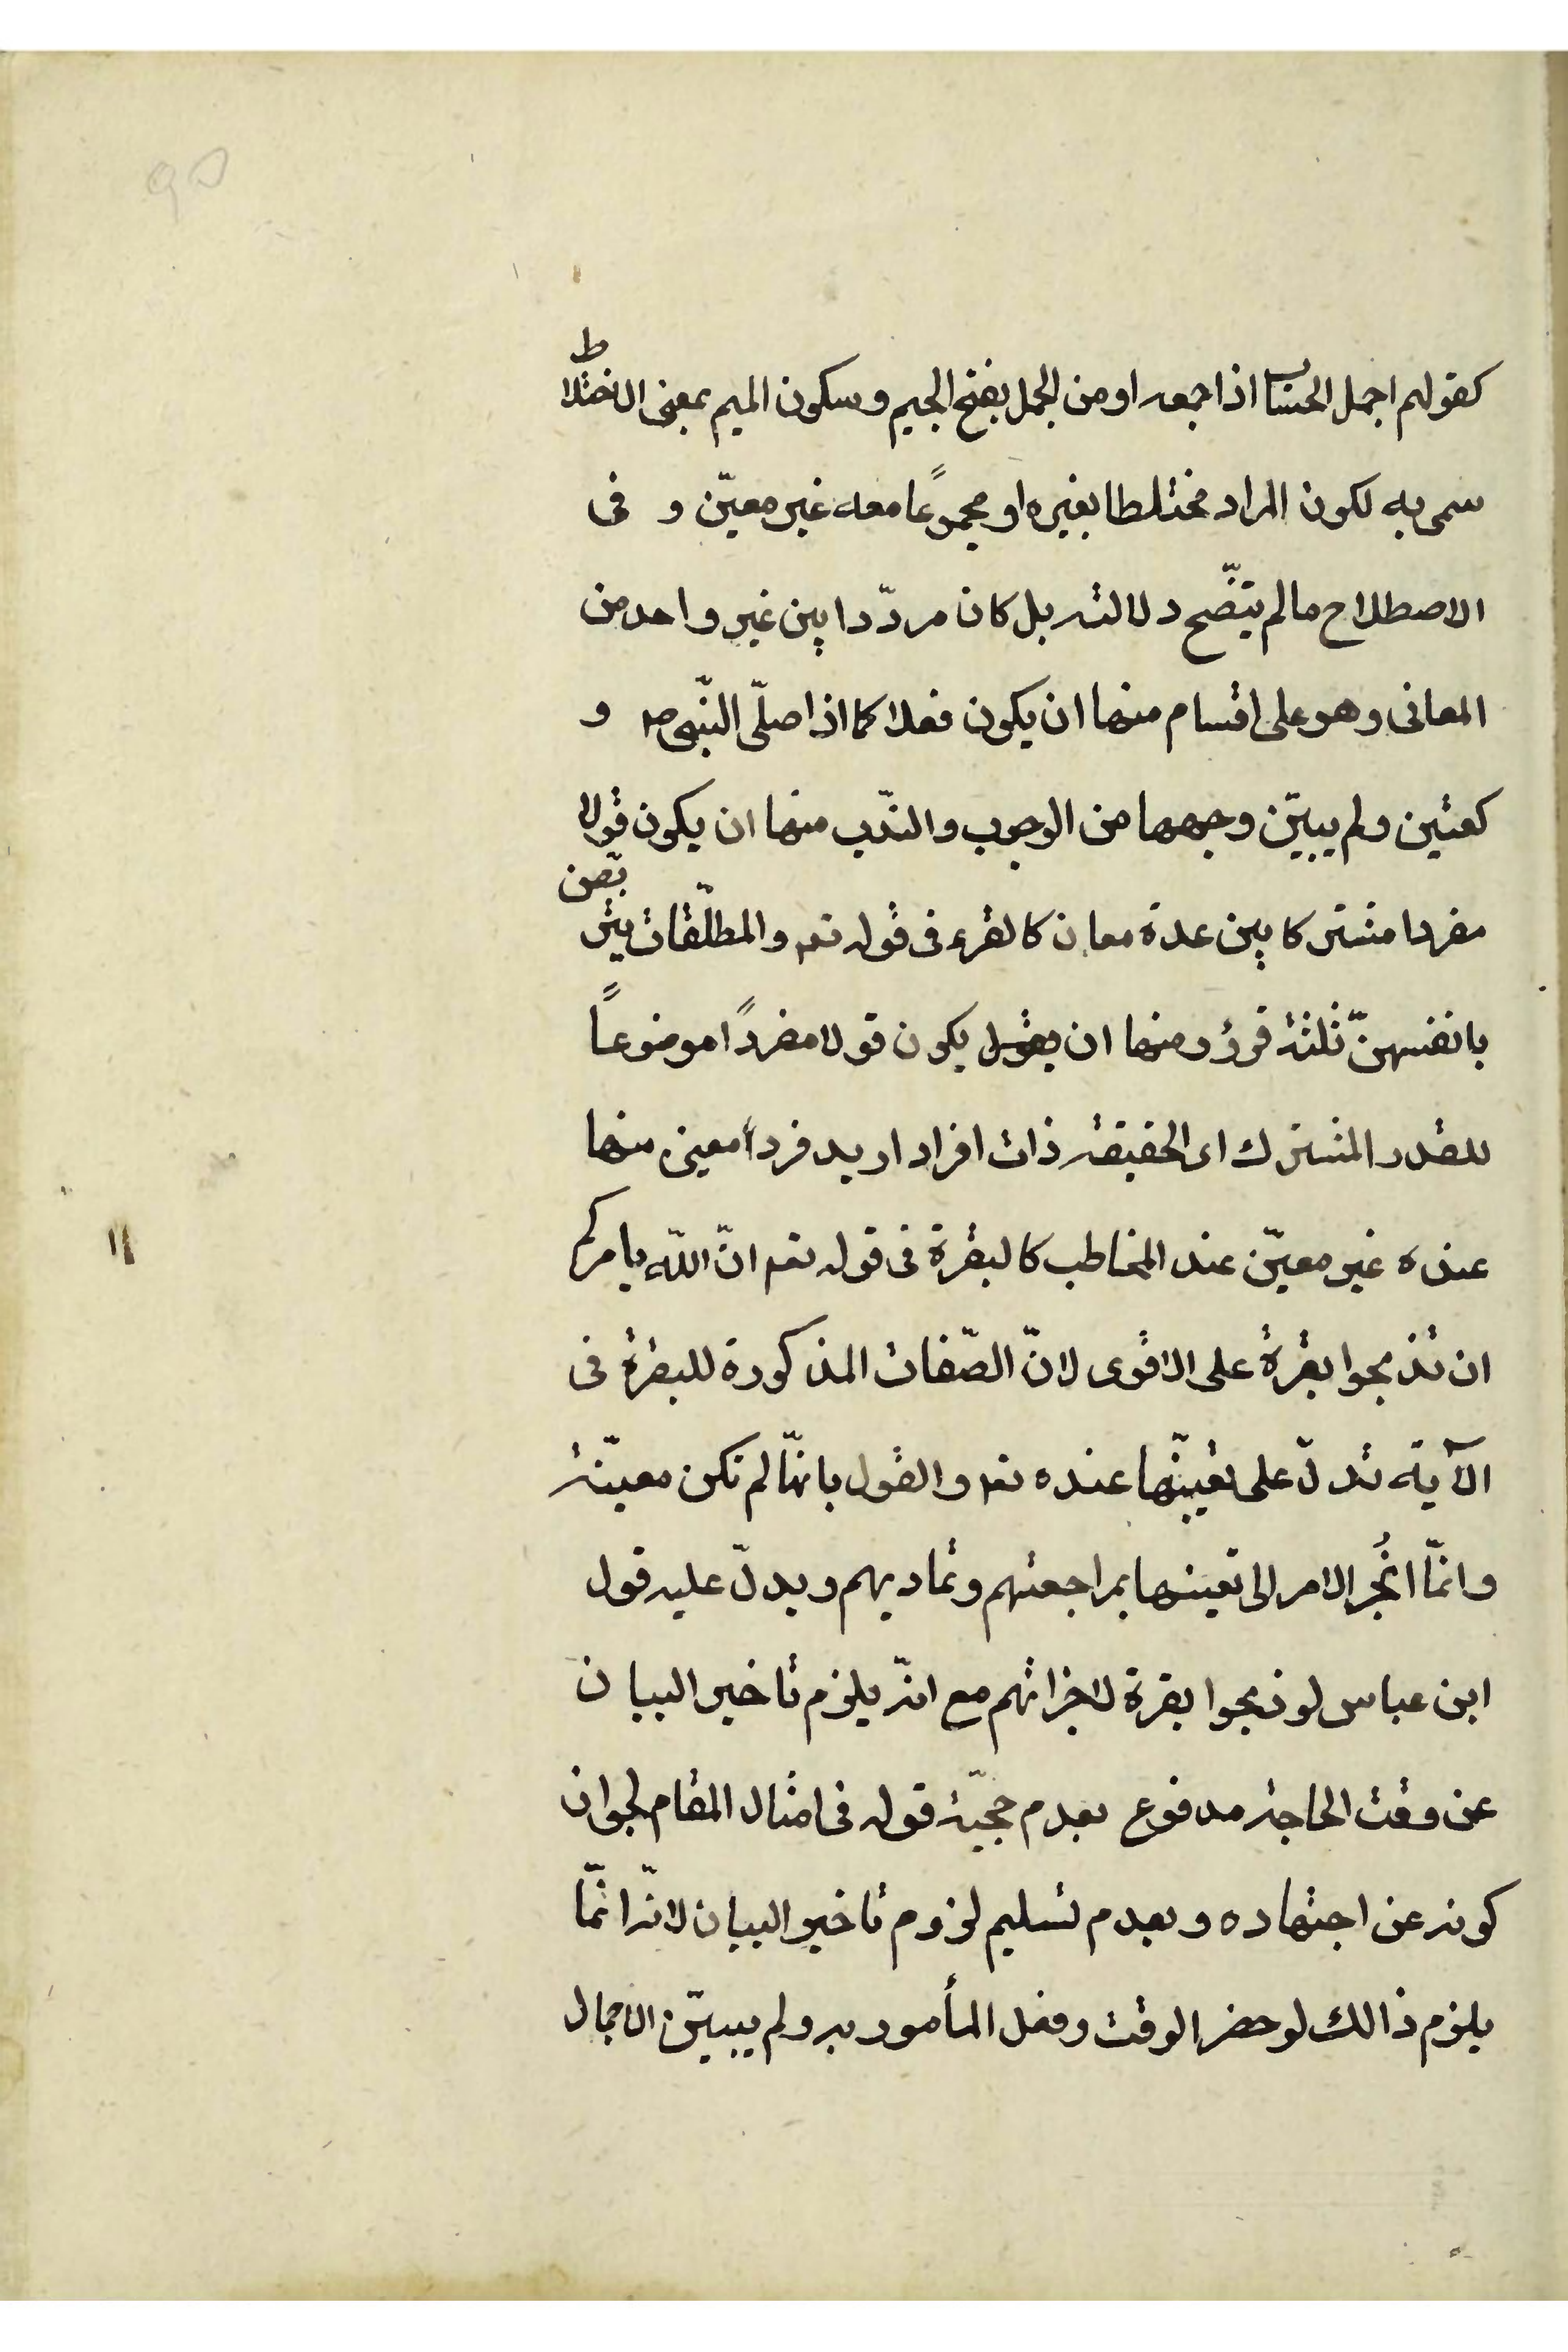 كقولهم اجمل الحساب اذا جمعه او من الجمل بفتح الجيم وسكون الميم بمعنى الاختلاط
سمى به لكون المراد مختلطا بغيره او مجموعًا معه غير معيّن و فى
الاصطلاح ما لم يتضّح دلالته بل كان مردّدا بين غير واحد من
المعانى وهو على اقسام منها ان يكون فعلا كما اذا صلّى النّبى ص و
كعتين ولم يبيّن وجهها من الوجوب والندّب منها ان يكون قولا
مفردا مشتركا بين عدة معان كالقرء فى قوله تعم والمطلّقات يتربّصن
بانفسهنّ ثلثة قروء ومنها ان يقول يكون قولا مفردًا موضوعاً
للقدر المشترك اى الحقيقة ذات افراد اريد فردا معين منها
عنده غير معيّن عند المخاطب كالبقرة فى قوله تعم انّ اللّه يامركم
ان تذبحوا بقرة على الاقوى لانّ الصّفات المذكورة للبقرة فى
الآية تدلّ على تعيّنها عنده تعم والقول بانّها لم تكن معيّنة
وانّما انُجر الامر الى تعينها بمراجعتهم وتماديهم ويدلّ عليه قول
ابن عباس لو ذبحوا بقرة لاجزاتهم مع انّه يلزم تاخير البيان
عن وقت الحاجة مدفوع بعدم حجيّة قوله فى امثال المقام لجواز
كونه عن اجتهاده وبعدم تسليم لزوم تاخير البيان لانّه انّما
يلزم ذالك لو حضر الوقت وفعل المأمور به ولم يبيّن الاجمال